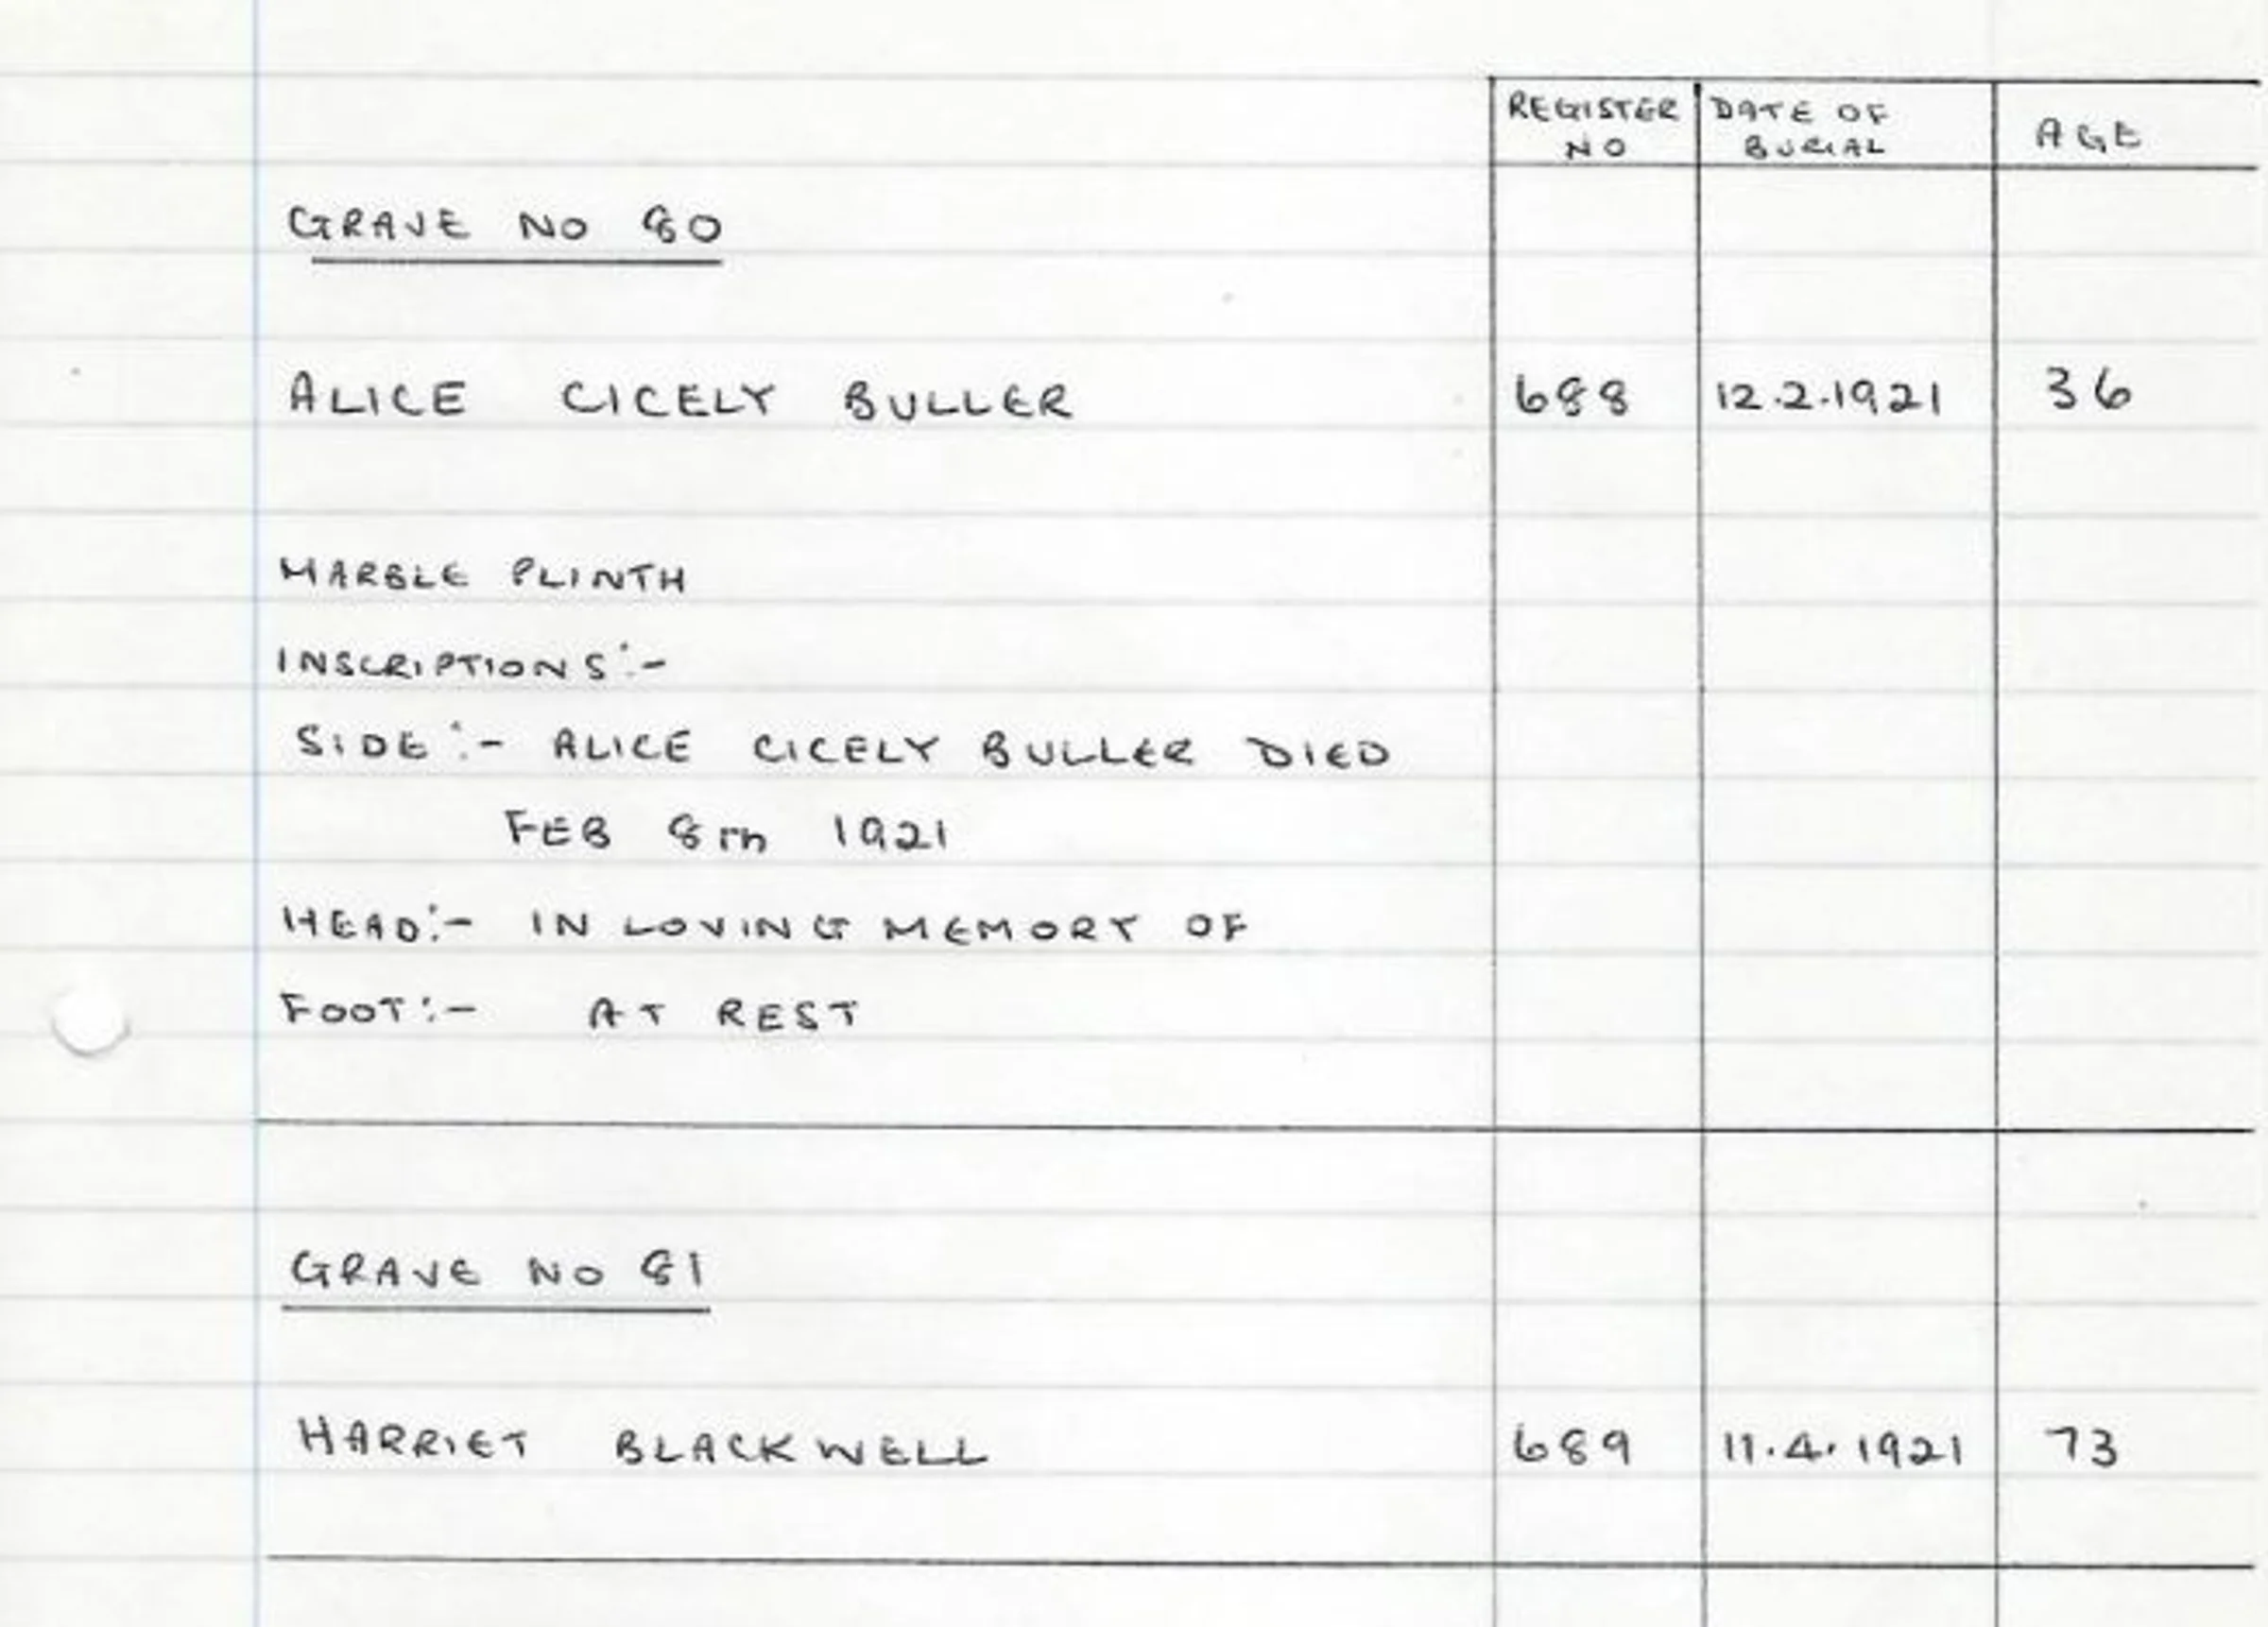 REGISTER NO DATE OF BURIAL AGE
GRAVE NO 80
ALICE CICELY BULLER 688 12.2.1921 36
MARBLE PLINTH
INSCRIPTIONS:-
SIDE:- ALICE CICELY BULLER DIED
FEB 8TH 1921
HEAD:- IN LOVING MEMORY OF
FOOT:- AT REST
GRAVE NO 81
HARRIET BLACKWELL 689 11.4.1921 73